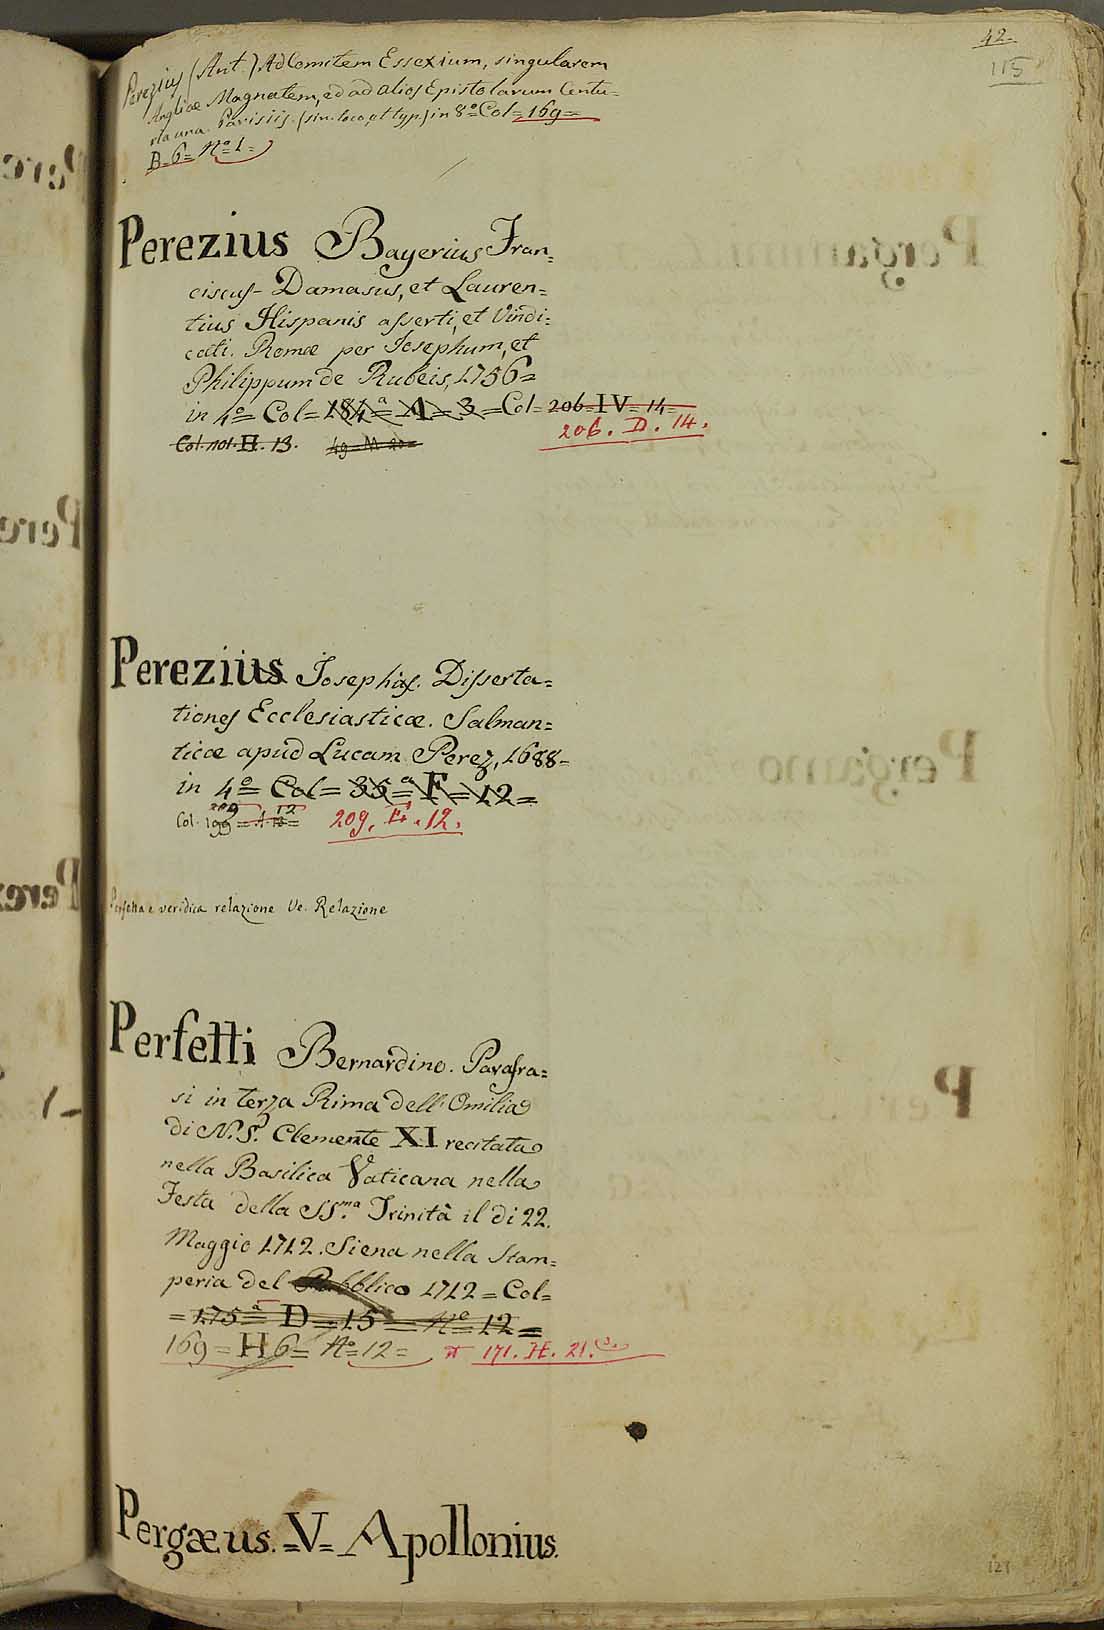 42.
115
Perezius (Ant.) Ad Comitem Essexium, singularem
Angliæ Magnatem, ed ad alios Epistolarum Centu=
ria una. Parisiis. (sin. loco, et typ.) in 8º Col=169=
B=6= Nº 1=
Perezius Bayerius Fran=
ciscus- Damasus, et Lauren=
tius Hispanis asserti, et Vindi=
cati. Romæ per Josephum, et
Philippum de Rubeis, 1756=
in 4º= Col= 184ª= A= 3=Col= 206=IV= 14=
206. D. 14.
Col. 101. H. 13. 49=M 20=
Perezius Josephus. Disserta=
tiones Ecclesiasticæ. Salman=
ticæ apud Lucam Perez, 1688=
in 4º= Col= 35ª= F= 12=
209 12
Col. 199= A 13= 209. F. 12.
Perfetta e veridica relazione Ve. Relazione
Perfetti Bernardino. Parafra=
si in terza Rima dell' Omilia
di N. S. Clemente XI recitata
nella Basilica Vaticana nella
Festa della SS.ma Trinità il di 22.
Maggio 1712. Siena nella Stam=
peria del Pubblico 1712=Col=
=175ª= D=15= Nº=12=
169=H 6= Nº=12= 171. H. 21.
Pergæus.=V= Apollonius.
121